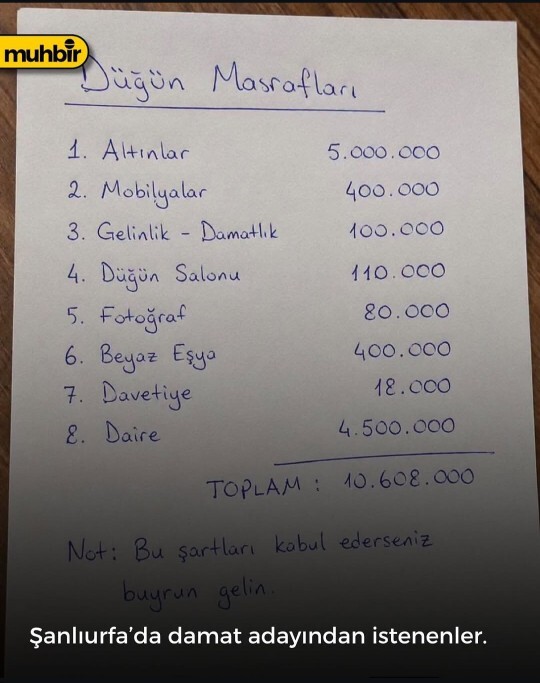 muhbir
Düğün Masrafları
1. Altınlar 5.000.000
2. Mobilyalar 400.000
3. Gelinlik - Damatlık 100.000
4. Düğün Salonu 110.000
5. Fotoğraf 80.000
6. Beyaz Eşya 400.000
7. Davetiye 18.000
8. Daire 4.500.000
TOPLAM : 10.608.000
Not: Bu şartları kabul ederseniz
buyrun gelin.
Şanlıurfa’da damat adayından istenenler.